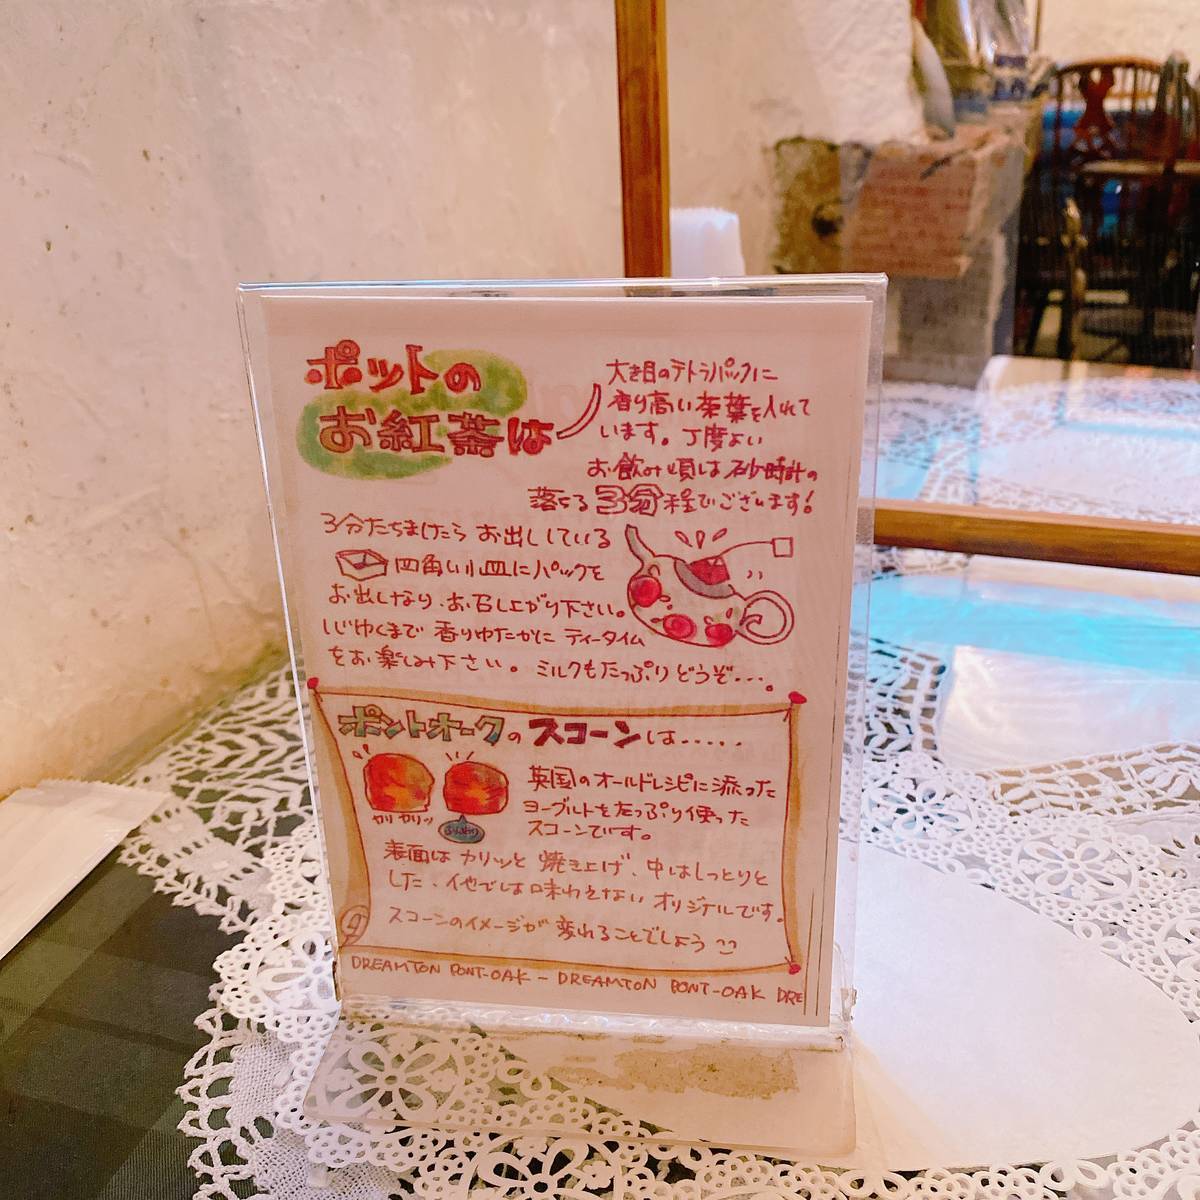 ポットの
お紅茶は
大き目のテトラパックに
香り高い茶葉を入れて
います。丁度よい
お飲み頃は砂時計の
落ちる3分程でございます!
3分たちましたら お出ししている
四角い小皿にパックを
お出しなり、お召し上がり下さい。
じゆくまで 香りゆたかに ティータイム
をお楽しみ下さい。ミルクもたっぷりどうぞ・・・。
ポントオークのスコーンは・・・・・
英国のオールドレシピに添った
ヨーグルトをたっぷり使った
スコーンです。
カリカリッ
ふんわり
表面はカリッと焼き上げ、中はしっとりと
した、他では味わえない オリジナルです。
スコーンのイメージが 変わることでしょう
DREAMTON PONT-OAK - DREAMTON PONT-OAK DRE